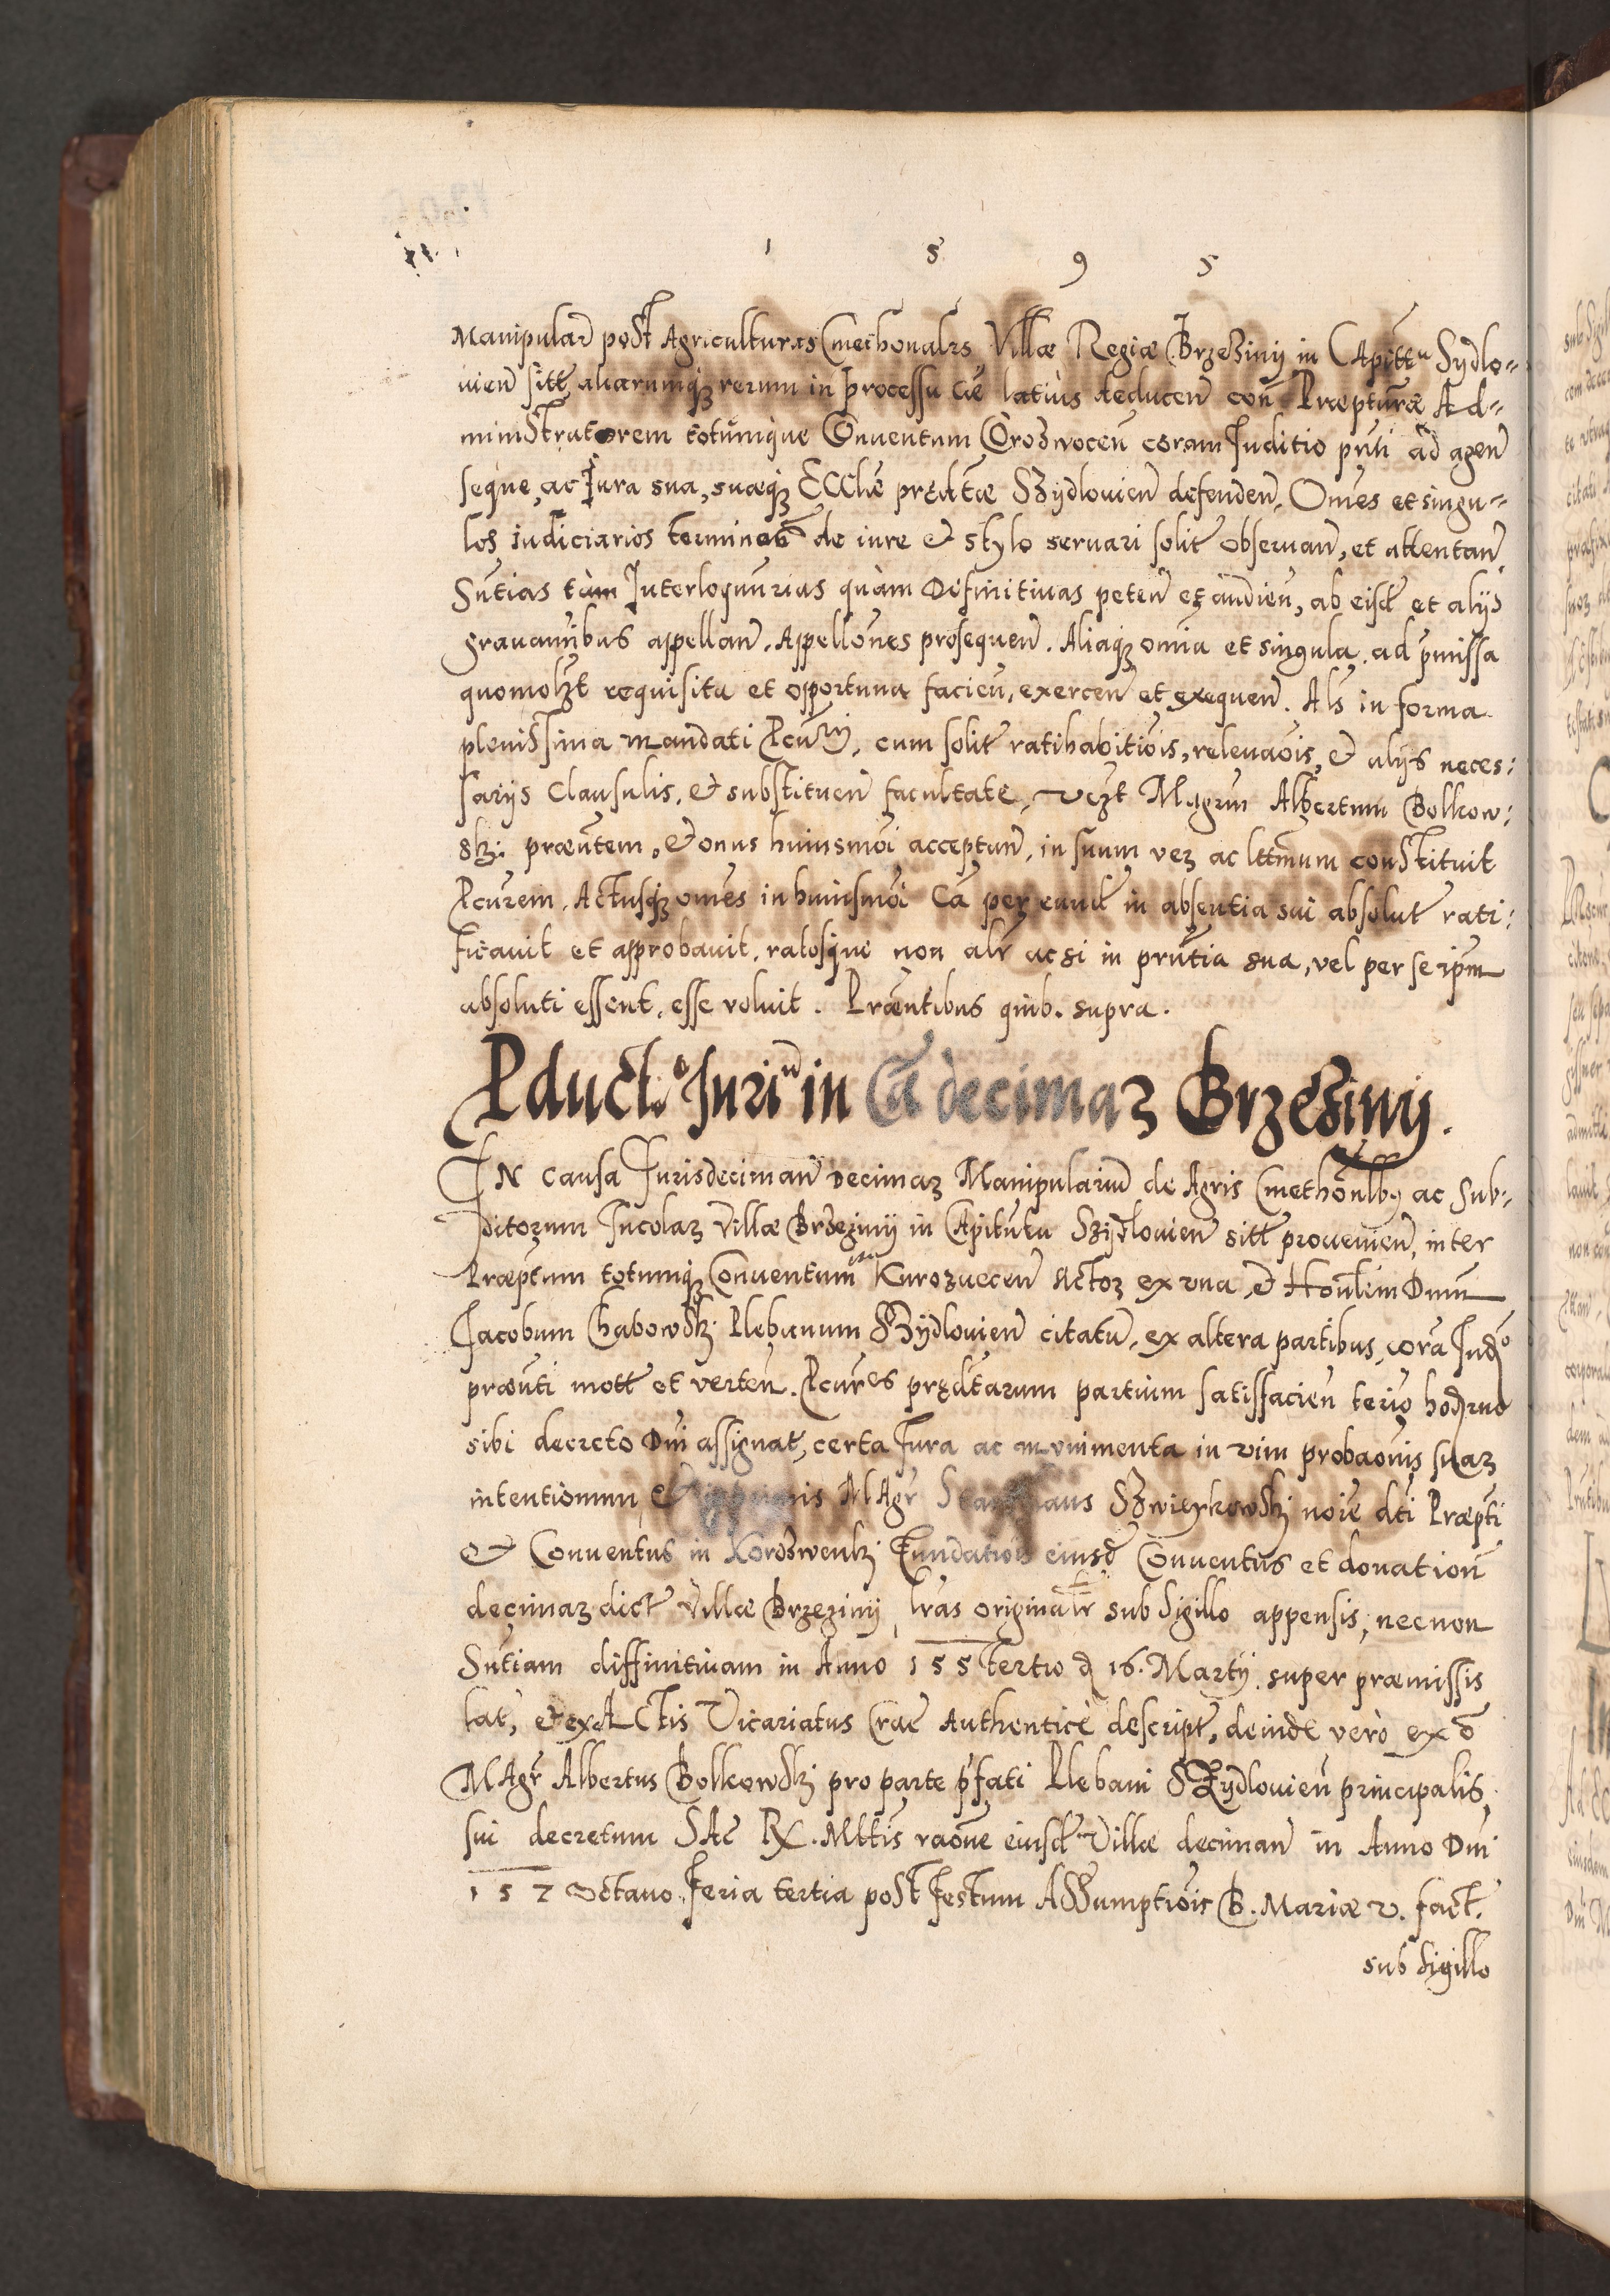 1 5 9 5
Manipular̃ post Agriculturas Cmethonales Villæ Regiæ Brzeziny in Capittu Sydlo=
uien̄ sitt̃ aliarumqꝫ rerum in processu cæ latius deducen̄ con̄ Præpturæ Ad=
ministratorem totumque Conuentum Crozwocen̄ coram Juditio pn̄ti ad agen̄
seque, ac Jura sua, suæqꝫ Eccliæ prędtæ Szydlouien̄ defenden̄, Omēs et singu=
los iudiciarios terminos de iure et stylo seruari solit̃ obseruan̄, et attentan̄
Sn̄tias tàm Interloquurias quàm Definitiuas peten̄ et audien̄, ab eisd̃ et alijs
grauam̃ibus appellan̄. Appellōnes prosequen̄. Aliaqꝫ omīa et singula ad p̃missa
quomolꝫt requisita et opportuna facien̄, exercen̄ et exequen̄. Als̃ in forma
plenissima mandati Pcūrij, cum solit̃ ratihabitiōis, releuaōis, et alijs neces:
sarijs Clausulis, et substituen̄ facultate, vigꝫt Magrum Albertum Bolkow:
skj præn̄tem, et onus huiusmōi acceptan̄, in suum veꝝ ac lttīmum constituit
Pcūrem. Actusqꝫ omēs in huiusmōi Cā per eund̃ in absentia sui absolut̃ rati:
ficauit et approbauit, ratosque non alr̃ ac si in prn̄tia sua, vel per se ipm̄
absoluti essent, esse voluit. Præn̄tibus quib. supra.
Pduct.º Juriū in Cā decimaꝝ Brzeziny.
In causa Jurisdeciman̄ decimaꝝ Manipularium de Agris Cmethōnlbꝫ ac Sub=
ditorum Incolaꝝ Villæ Brzeziny in Capitulu Szydlouien̄ sitt̃ prouenien̄, inter
Præptum totumqꝫ Conuentum Kurozuecen̄ Actoꝝ ex vna, et Honlēm Dnum
Jacobum Chabowskj Plebanum Szydlouien̄ citatū, ex altera partibus, corā Judº
præn̄ti mott̃ et verten̄. Pcūres prędtarum partium satisfacien̄ ter̄io hodr̄no
sibi decreto Dni assignat̃, certa Jura ac munimenta in vim probaōnis suaꝝ
intentionum, et Mgr̃ Szwierkowskj noīe dti Præpti
et Conuentus in Korozwenkj Fundatiōis eiusd̃ Conuentus et donation̄
decimaꝝ dict̃ Villæ Brzeziny, lr̄as originalr̃ sub Sigillo appensis, necnon
Sn̄tiam diffinitiuam in Anno 155 tertio d 16. Martij super præmissis
lat̃, et ex Actis Vicariatus Crac̄ Authenticè descript̃, deinde verò ex o
Mgr̃ Albertus Bolkowskj pro parte p̃fati Plebani Szydlouien̄ principalis
sui decretum Sac̄ Rx. Mttīs raōne eiusd̃ Villæ deciman̄ in Anno Dni
157 octauo Feria tertia post Festum Assumptiōis B. Mariæ v. fact̃.
sub Sigillo